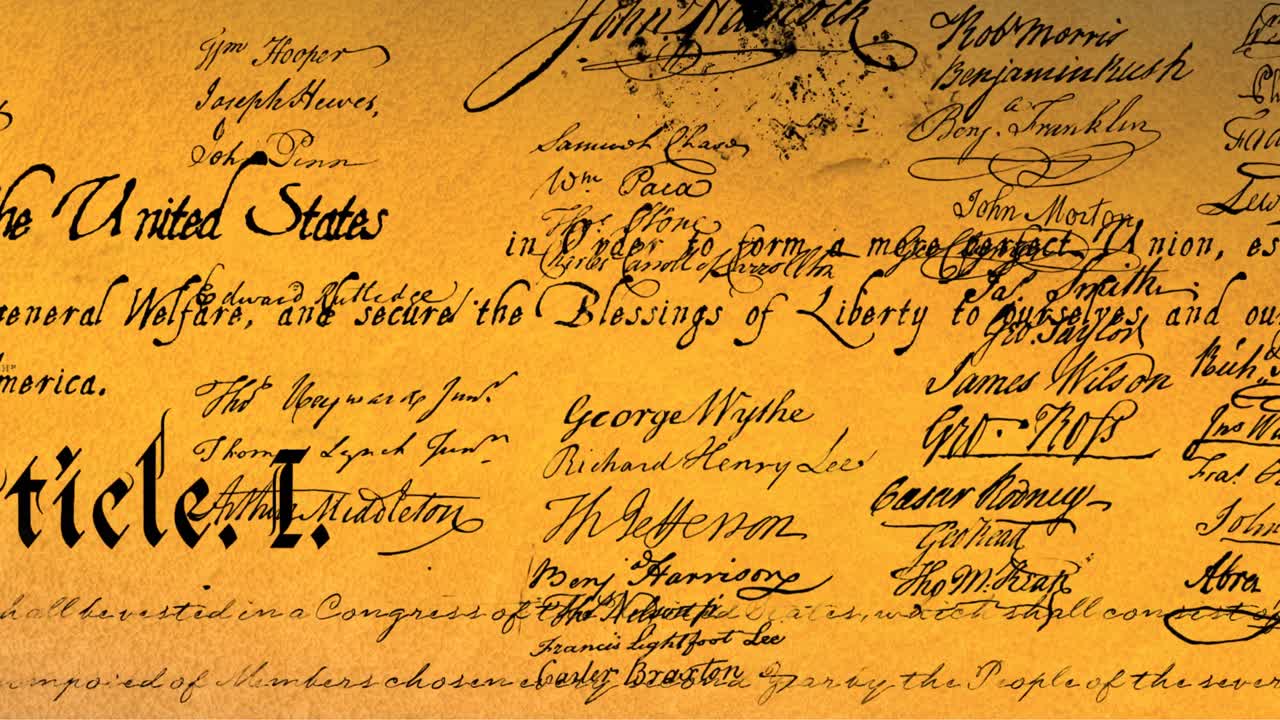 John Hancock
Wm Hooper
Joseph Hewes,
John Penn
Edward Rutledge
Thos Heyward Junr.
Thomas Lynch Junr.
Arthur Middleton
Samuel Chase
Wm. Paca
Thos. Stone
Charles Carroll of Carrollton
George Wythe
Richard Henry Lee
Th Jefferson
Benj Harrison
Thos Nelson jr.
Francis Lightfoot Lee
Carter Braxton
Robt Morris
Benjamin Rush
Benj. Franklin
John Morton
Geo Clymer
Jas. Smith
Geo. Taylor
James Wilson
Geo. Ross
Caesar Rodney
Geo Read
Tho M:Kean
Lew
Richd.
Jns
Fras.
John
Abra
the United States in Order to form a more perfect Union, es
general Welfare, and secure the Blessings of Liberty to ourselves and ou
merica.
rticle. I.
hall be vested in a Congress of the United States, which shall consist of
omposed of Members chosen every second Year by the People of the sever